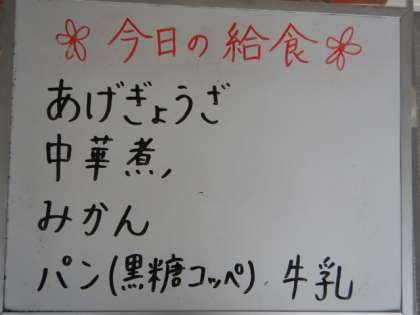 今日の給食
あげぎょうざ
中華煮
みかん
パン(黒糖コッペ)、牛乳